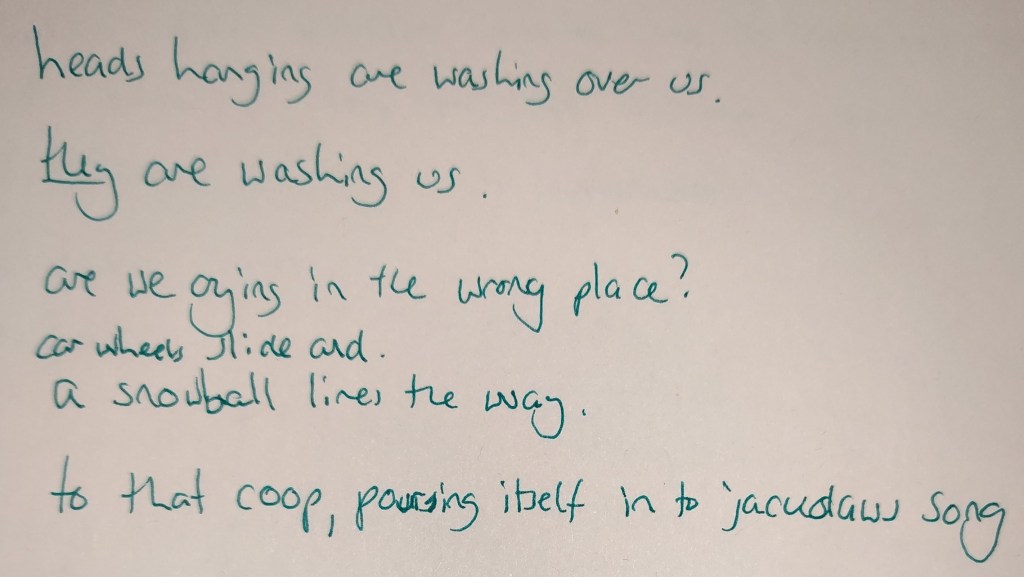 heads hanging are washing over us.
they are washing us.
are we crying in the wrong place?
car wheels slide and.
a snowball lines the way.
to that coop, poursing itself in to jacudaws song